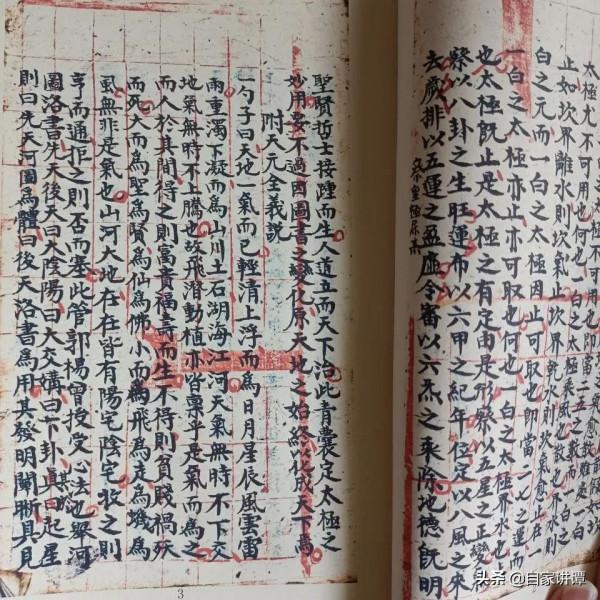 太極尤不可用也
止如坎界離水則坎氣止坎界乾水則坎氣愈止在一
白之元而一白之太極因止可取也即當一七之運而
一白之太極亦止亦可取也何也一白之太極界水也
也太極既止是太極之有定由是形察以五星之正變
察以八卦之生旺運布以六甲之紀年位定以八風之來
去歲排以五運之盈虛令審以六氣之乘除地德既明
聖賢哲士接踵而生人道立而天下治此青囊定太極之
妙用要不過因圖書之變化原天地之始終以化成天下焉
附天元全義說
一勺子曰天地一氣而已輕清上浮而為日月星辰風雲雷
雨重濁下凝而為山川土石湖海江河天氣無時不下交
地氣無時不上騰也故飛潛動植亦皆稟乎是氣而為之
而人於其間得之則富貴福壽而生不得則貧賤禍殀
而死大而為聖為賢為仙為佛小而為飛為走為蠛為
虱無非是氣也山河大地在在皆有陽宅陰宅收之則
亨而通拒之則否而塞此管郭楊曾授受心法也舉河
圖洛書先天後天曰大陰陽曰大交媾曰下卦真曰起星
則曰先天河圖為體曰後天洛書為用其發明闡晰具見
3
头条 @自家讲谭